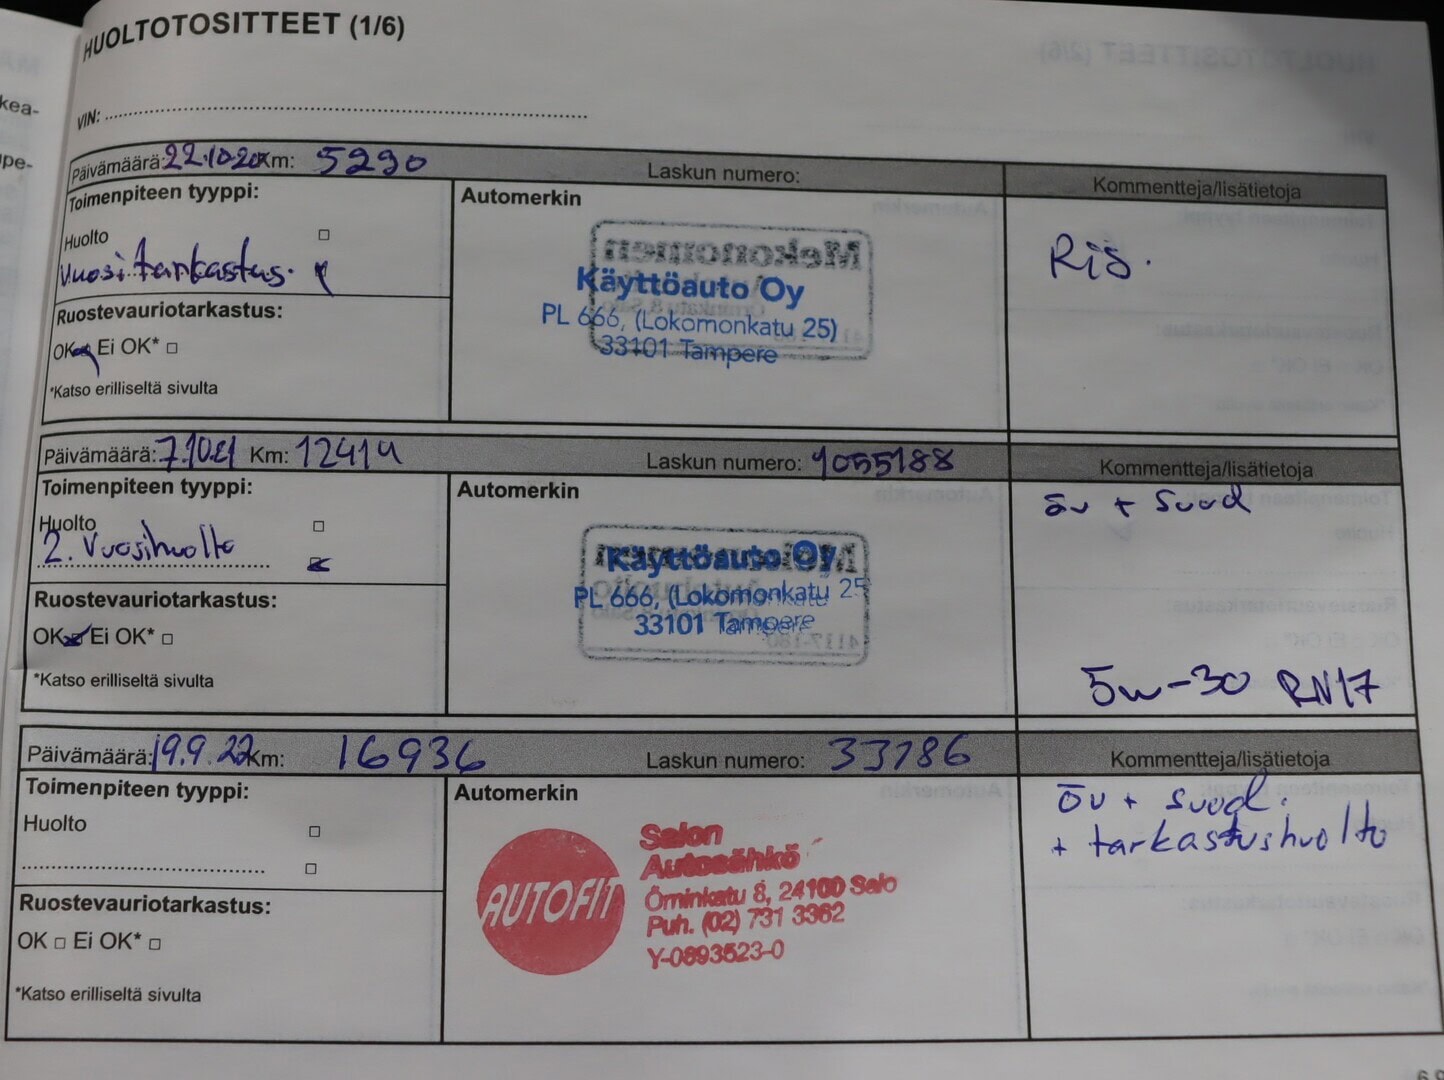 HUOLTOTOSITTEET (1/6)
kea-
VIN:
pe-
Päivämäärä: 22.10.20 Km: 5290 Laskun numero: Kommentteja/lisätietoja
Toimenpiteen tyyppi: Automerkin
Huolto
Vuositarkastus.
Käyttöauto Oy
PL 666, (Lokomonkatu 25)
33101 Tampere
Ruostevauriotarkastus:
OK Ei OK*
*Katso erilliseltä sivulta
Päivämäärä: 7.10.21 Km: 12414 Laskun numero: 1055188 Kommentteja/lisätietoja
Toimenpiteen tyyppi: Automerkin
öv + suod
Huolto
2. Vuosihuolto
Käyttöauto Oy
PL 666, (Lokomonkatu 25
33101 Tampere
Ruostevauriotarkastus:
OK Ei OK*
*Katso erilliseltä sivulta
5w-30 RN17
Päivämäärä: 19.9.22 Km: 16936 Laskun numero: 33786 Kommentteja/lisätietoja
Toimenpiteen tyyppi: Automerkin
öv + suod.
+ tarkastushuolto
Huolto
AUTOFIT
Salon
Autosähkö
Örninkatu 8, 24100 Salo
Puh. (02) 731 3362
Y-0893523-0
Ruostevauriotarkastus:
OK Ei OK*
*Katso erilliseltä sivulta